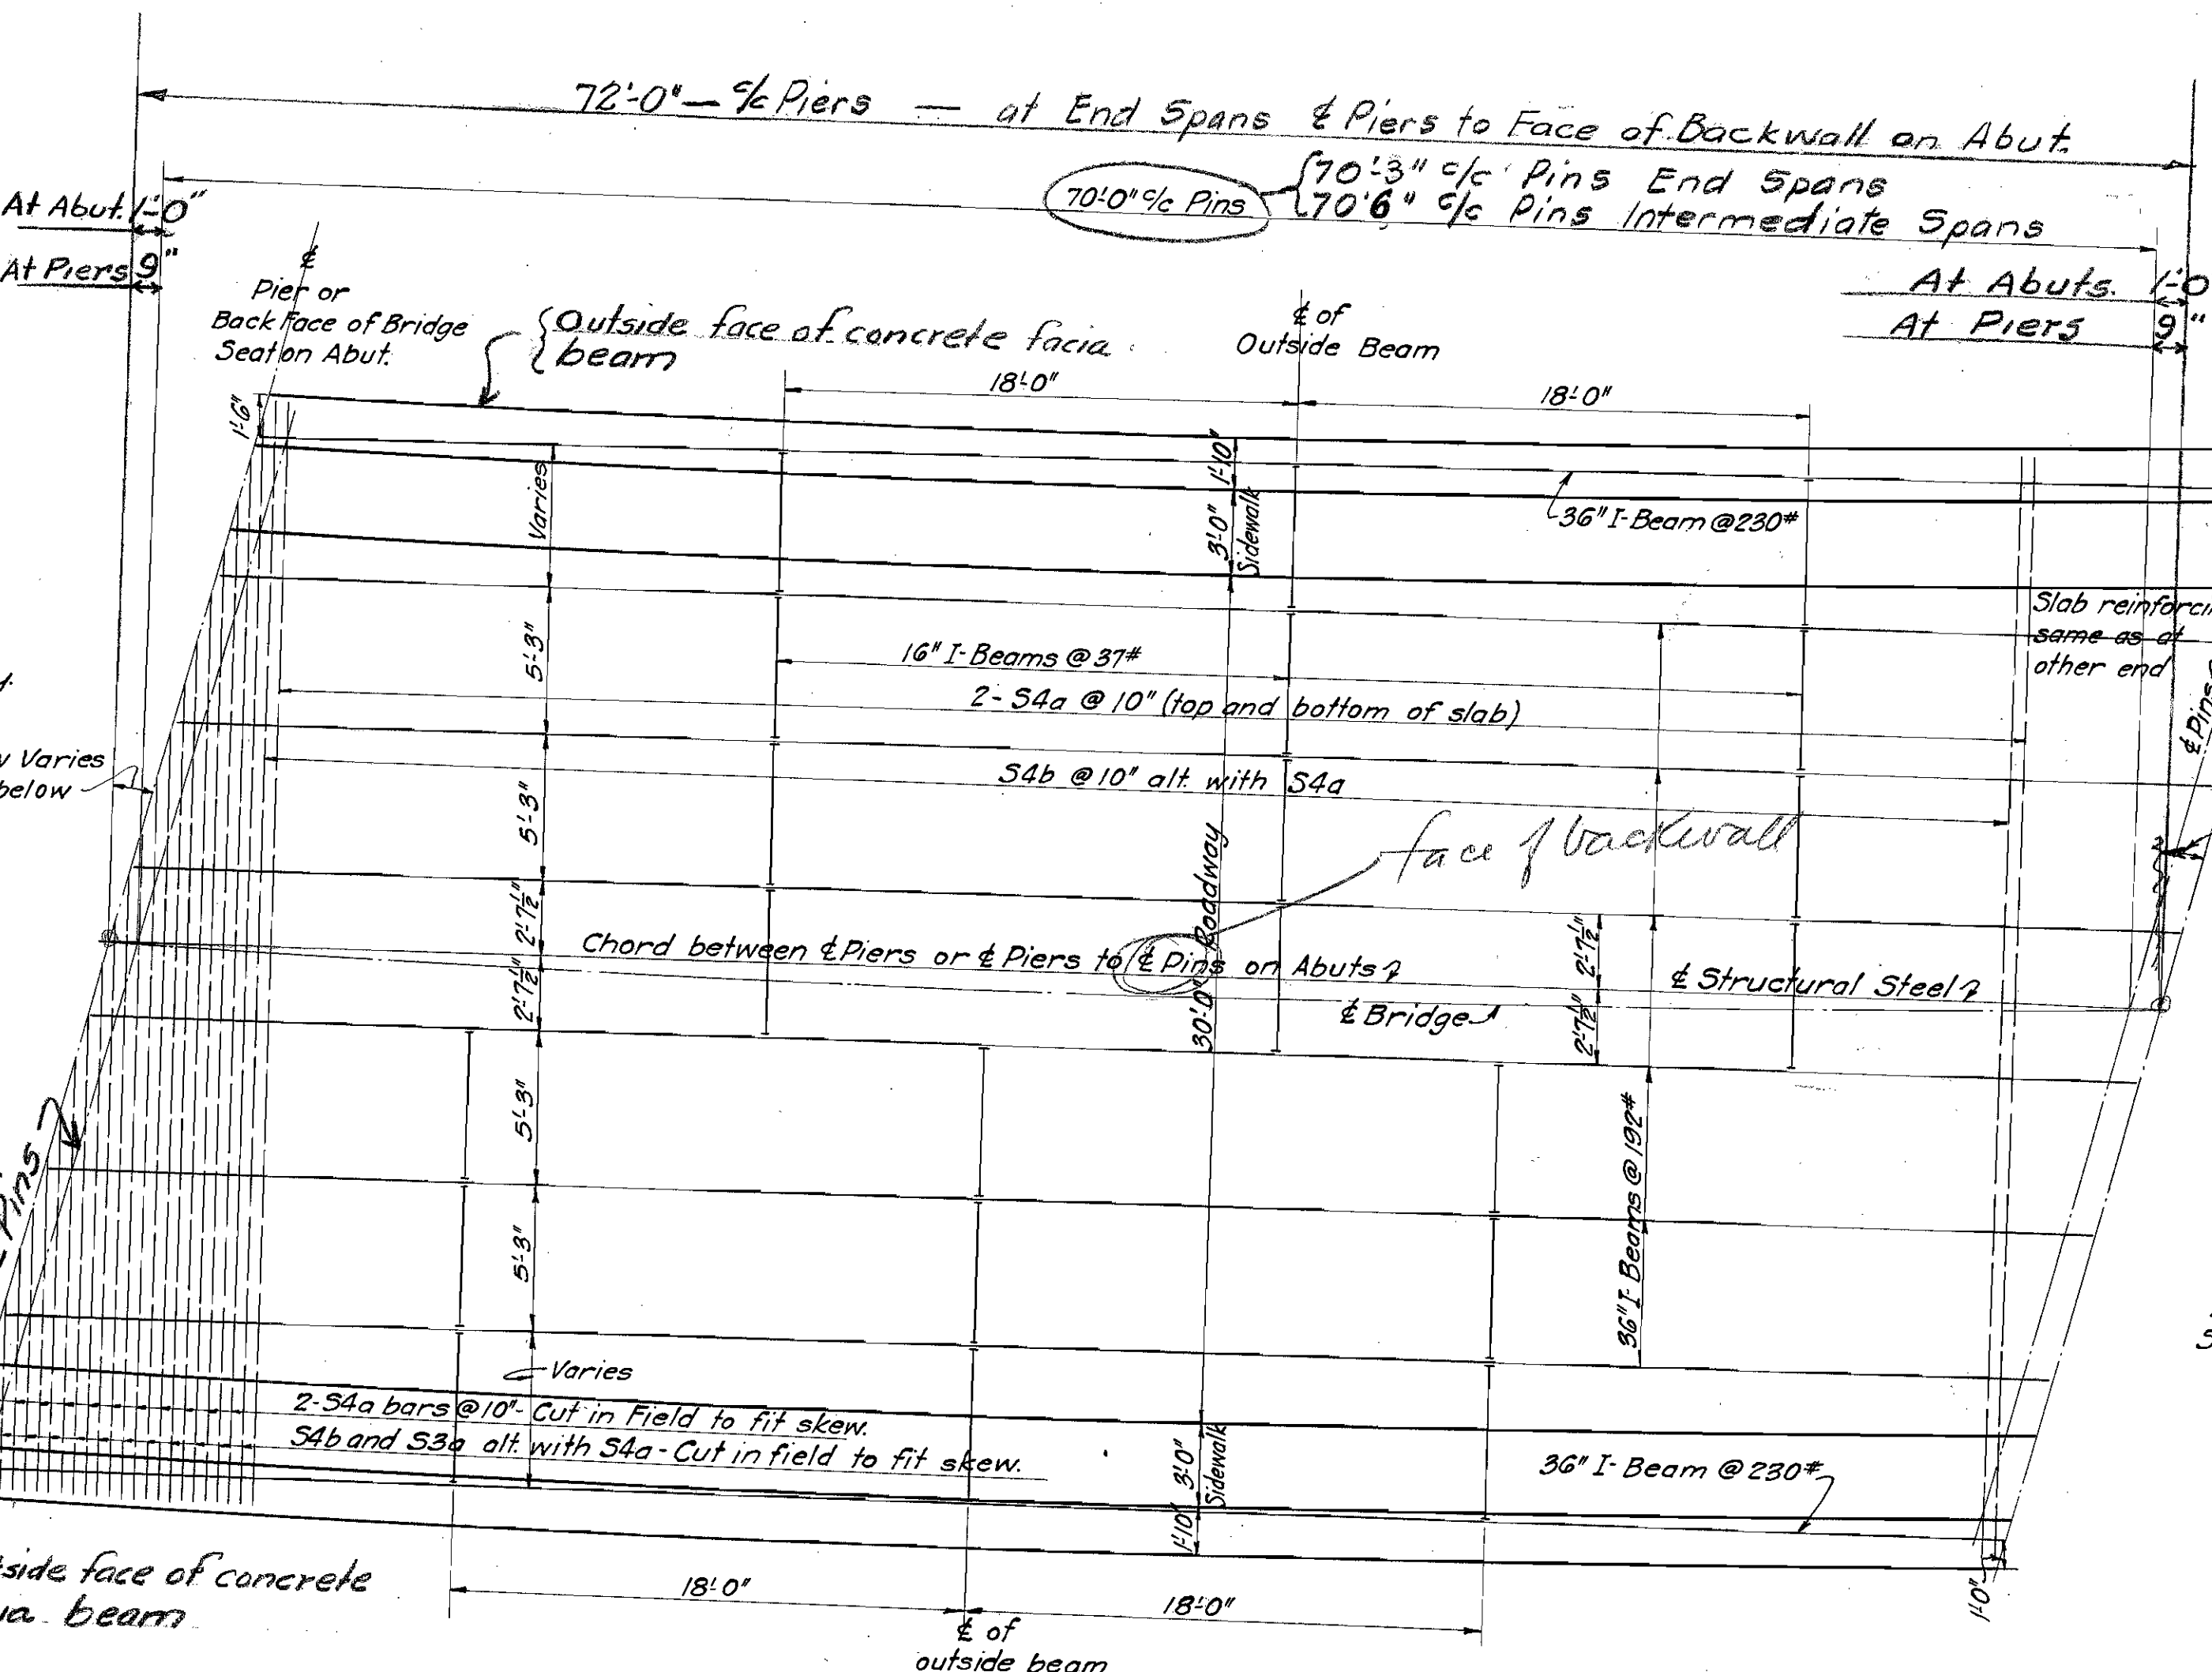 72'-0" — c/c Piers — at End Spans ℄ Piers to Face of Backwall on Abut.
70'-0" c/c Pins
70'-3" c/c Pins End Spans
70'6" c/c Pins Intermediate Spans
At Abut. 1'-0"
At Piers 9"
At Abuts. 1'-0
At Piers 9"
℄
Pier or
Back Face of Bridge
Seat on Abut.
Outside face of concrete facia
beam
℄ of
Outside Beam
18'-0"
18'-0"
1'-6"
Varies
1'-10"
3'-0"
Sidewalk
36" I-Beam @ 230#
Slab reinforcin
same as at
other end
5'-3"
16" I-Beams @ 37#
2- S4a @ 10" (top and bottom of slab)
℄ Pins
Varies
below
5'-3"
S4b @ 10" alt. with S4a
face of backwall
30'-0" Roadway
2'-7½"
2'-7½"
Chord between ℄ Piers or ℄ Piers to ℄ Pins on Abuts
2'-7½"
2'-7½"
℄ Structural Steel
℄ Bridge
5'-3"
Pins
36" I-Beams @ 192#
5'-3"
Varies
2-S4a bars @ 10"- Cut in Field to fit skew.
S4b and S3a alt. with S4a - Cut in field to fit skew.
3'-0"
Sidewalk
1'-10"
36" I-Beam @ 230#
tside face of concrete
beam
18'-0"
18'-0"
1'-0"
℄ of
outside beam